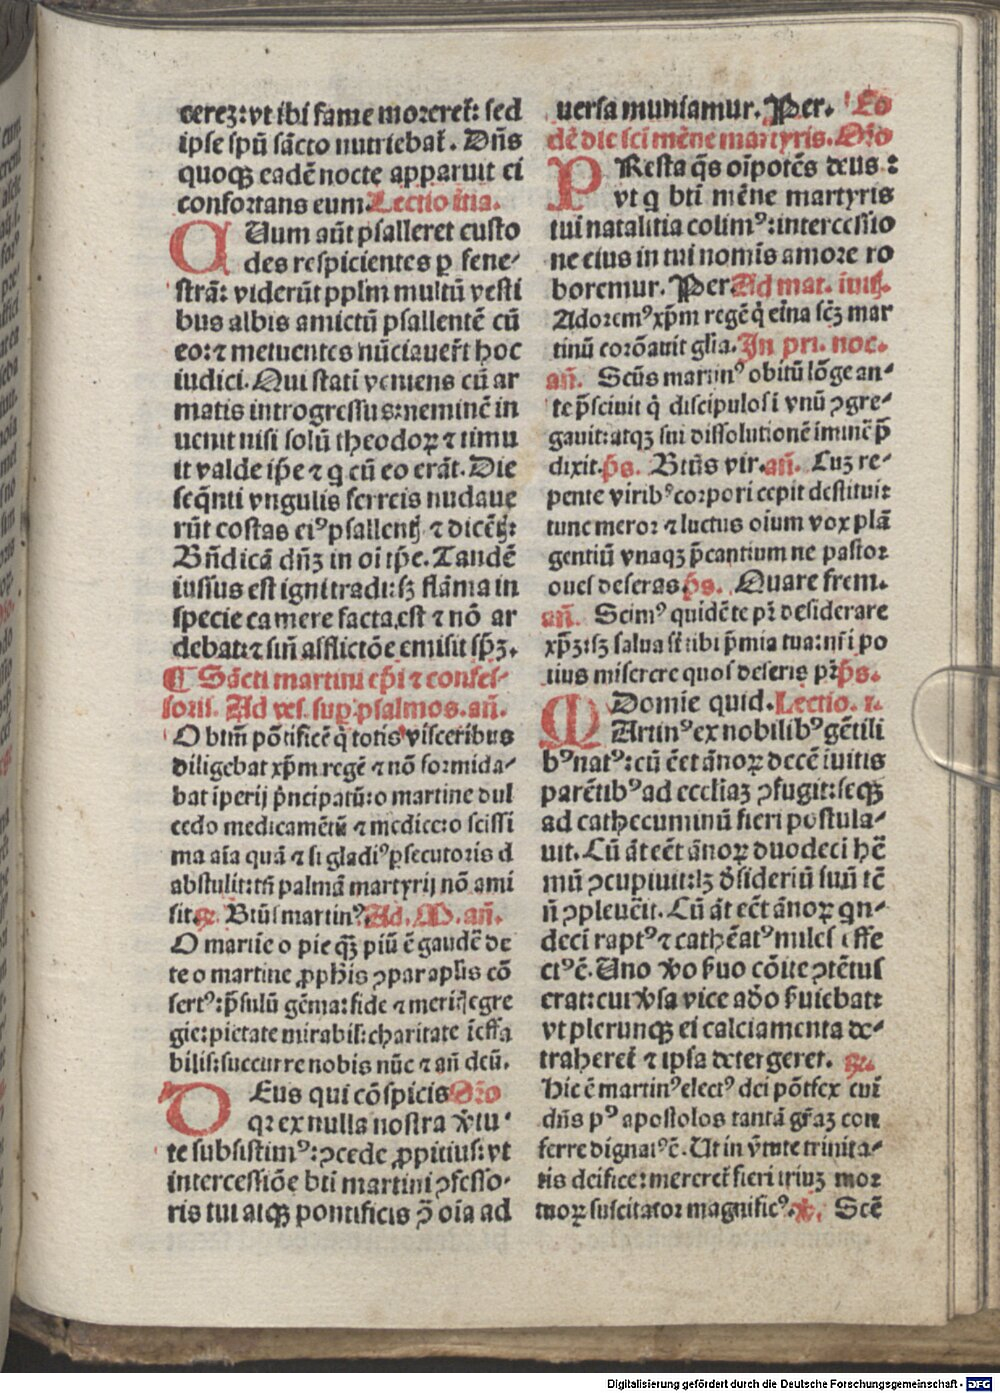 cerez: vt ibi fame moreret᷑: sed
ipse spū sācto nutriebat᷑. Dn̄s
quoqꝫ eadē nocte apparuit ei
confortans eum. Lectio iiia.
Cum aūt psalleret custo
des respicientes ꝑ fene⸗
strā: viderūt pplm multū vesti
bus albis amictū psallentē cū
eo: ⁊ metuentes nūciauer̄t hoc
iudici. Qui stati veniens cū ar
matis introgressus: neminē in
uenit nisi solū theodoꝝ ⁊ timu
it valde ip̄e ⁊ q̄ cū eo erāt. Die
seq̄nti vngulis ferreis nudaue
rūt costas eiꝰ psallentꝭ ⁊ dicētꝭ:
Bn̄dicā dn̄ꝫ in oi tp̄e. Tandē
iussus est igni tradi: sꝫ flāma in
specie camere facta est ⁊ nō ar
debat: ⁊ sin̄ afflictōe emisit sp̄ꝫ.
¶ Sācti martini ep̄i ⁊ confes⸗
soris. Ad ves. suꝑ psalmos. an̄.
O btm̄ pōtificē q̄ totis visceribus
diligebat xp̄m regē ⁊ nō formida⸗
bat īperij p̄ncipatū: o martine dul
cedo medicamētū ⁊ medice: o scissi
ma aīa quā ⁊ si gladiꝰ ꝑsecutoris ñ
abstulit: tn̄ palmā martyrij nō ami
sit. ꝶ. Btūs martinꝰ. Ad. M. an̄.
O martīe o pie qꝫ piū ē gaudē de
te o martine ꝓphis ꝯpar aplīs cō
sertꝰ: p̄sulū gēma: fide ⁊ meritꝭ egre
gie: pietate mirabil: charitate īeffa
bilis: succurre nobis nūc ⁊ an̄ deū.
Deus qui cōspicis Or̄o
qꝛ ex nulla nostra v̄tu⸗
te subsistimꝰ: ꝯcede ꝓpitius: vt
intercessiōe bti martini ꝯfesso⸗
ris tui atqꝫ pontificis ꝯ̄ oīa ad
uersa muniamur. Per. Eo
dē die sci mēne martyris. Or̄o
PResta q̄s oīpotēs deus:
vt q̄ bti mēne martyris
tui natalitia colimꝰ: intercessio
ne eius in tui nomīs amore ro
boremur. Per. Ad mat. iuitꝭ.
Adoremꝰ xp̄m regē q̄ eīna scꝫ mar
tinū corōauit glīa. In pri. noc.
an̄. Scūs martinꝰ obitū lōge an⸗
te p̄sciuit q̄ discipulos i vnū ꝯgre⸗
gauit: atqꝫ sui dissolutionē iminē p̄
dixit. p̄s. Btūs vir. an̄. Cuꝫ re⸗
pente viribꝰ corpori cepit destitui:
tunc meror ⁊ luctus oīum vox plā
gentiū vnaqꝫ p̄cantium ne pastor
oues deseras p̄s. Quare frem.
an̄. Scimꝰ quidē te pr̄ desiderare
xp̄ꝫ: sꝫ salua st̄ tibi p̄mia tua: nr̄i po
tius miserere quos deseris pr̄ p̄s.
Domie quid. Lectio. i.
MArtinꝰ ex nobilibꝰ gētili
bꝰ natꝰ: cū eēt ānoꝝ decē iuitis
parētibꝰ ad eccliaꝫ ꝯfugit: seqꝫ
ad cathecuminū fieri postula⸗
uit. Cū āt eēt ānoꝝ duodeci hē
mū ꝯcupiuit: sꝫ desideriū suū tē
n̄ ꝯpleuēit. Cū āt eēt ānoꝝ qn̄⸗
deci raptꝰ ⁊ cathēatꝰ miles effe
ctꝰ ē. Uno v̄o s̄uo cōite ꝯtētus
erat: cui v̄sa vice ado s̄uiebat:
vt plerunqꝫ ei calciamenta de⸗
traheret᷑ ⁊ ipsa detergeret. ꝶ.
Hic ē martinꝰ electꝰ dei pōtfex cui
dn̄s pꝰ apostolos tantā gr̄aꝫ con
ferre dignatꝰ ē. Ut in v̄tute trinita⸗
tis deifice: mereret᷑ fieri triuꝫ mor
tuoꝝ suscitator magnificꝰ. ℣. Scē
Digitalisierung gefördert durch die Deutsche Forschungsgemeinschaft - DFG